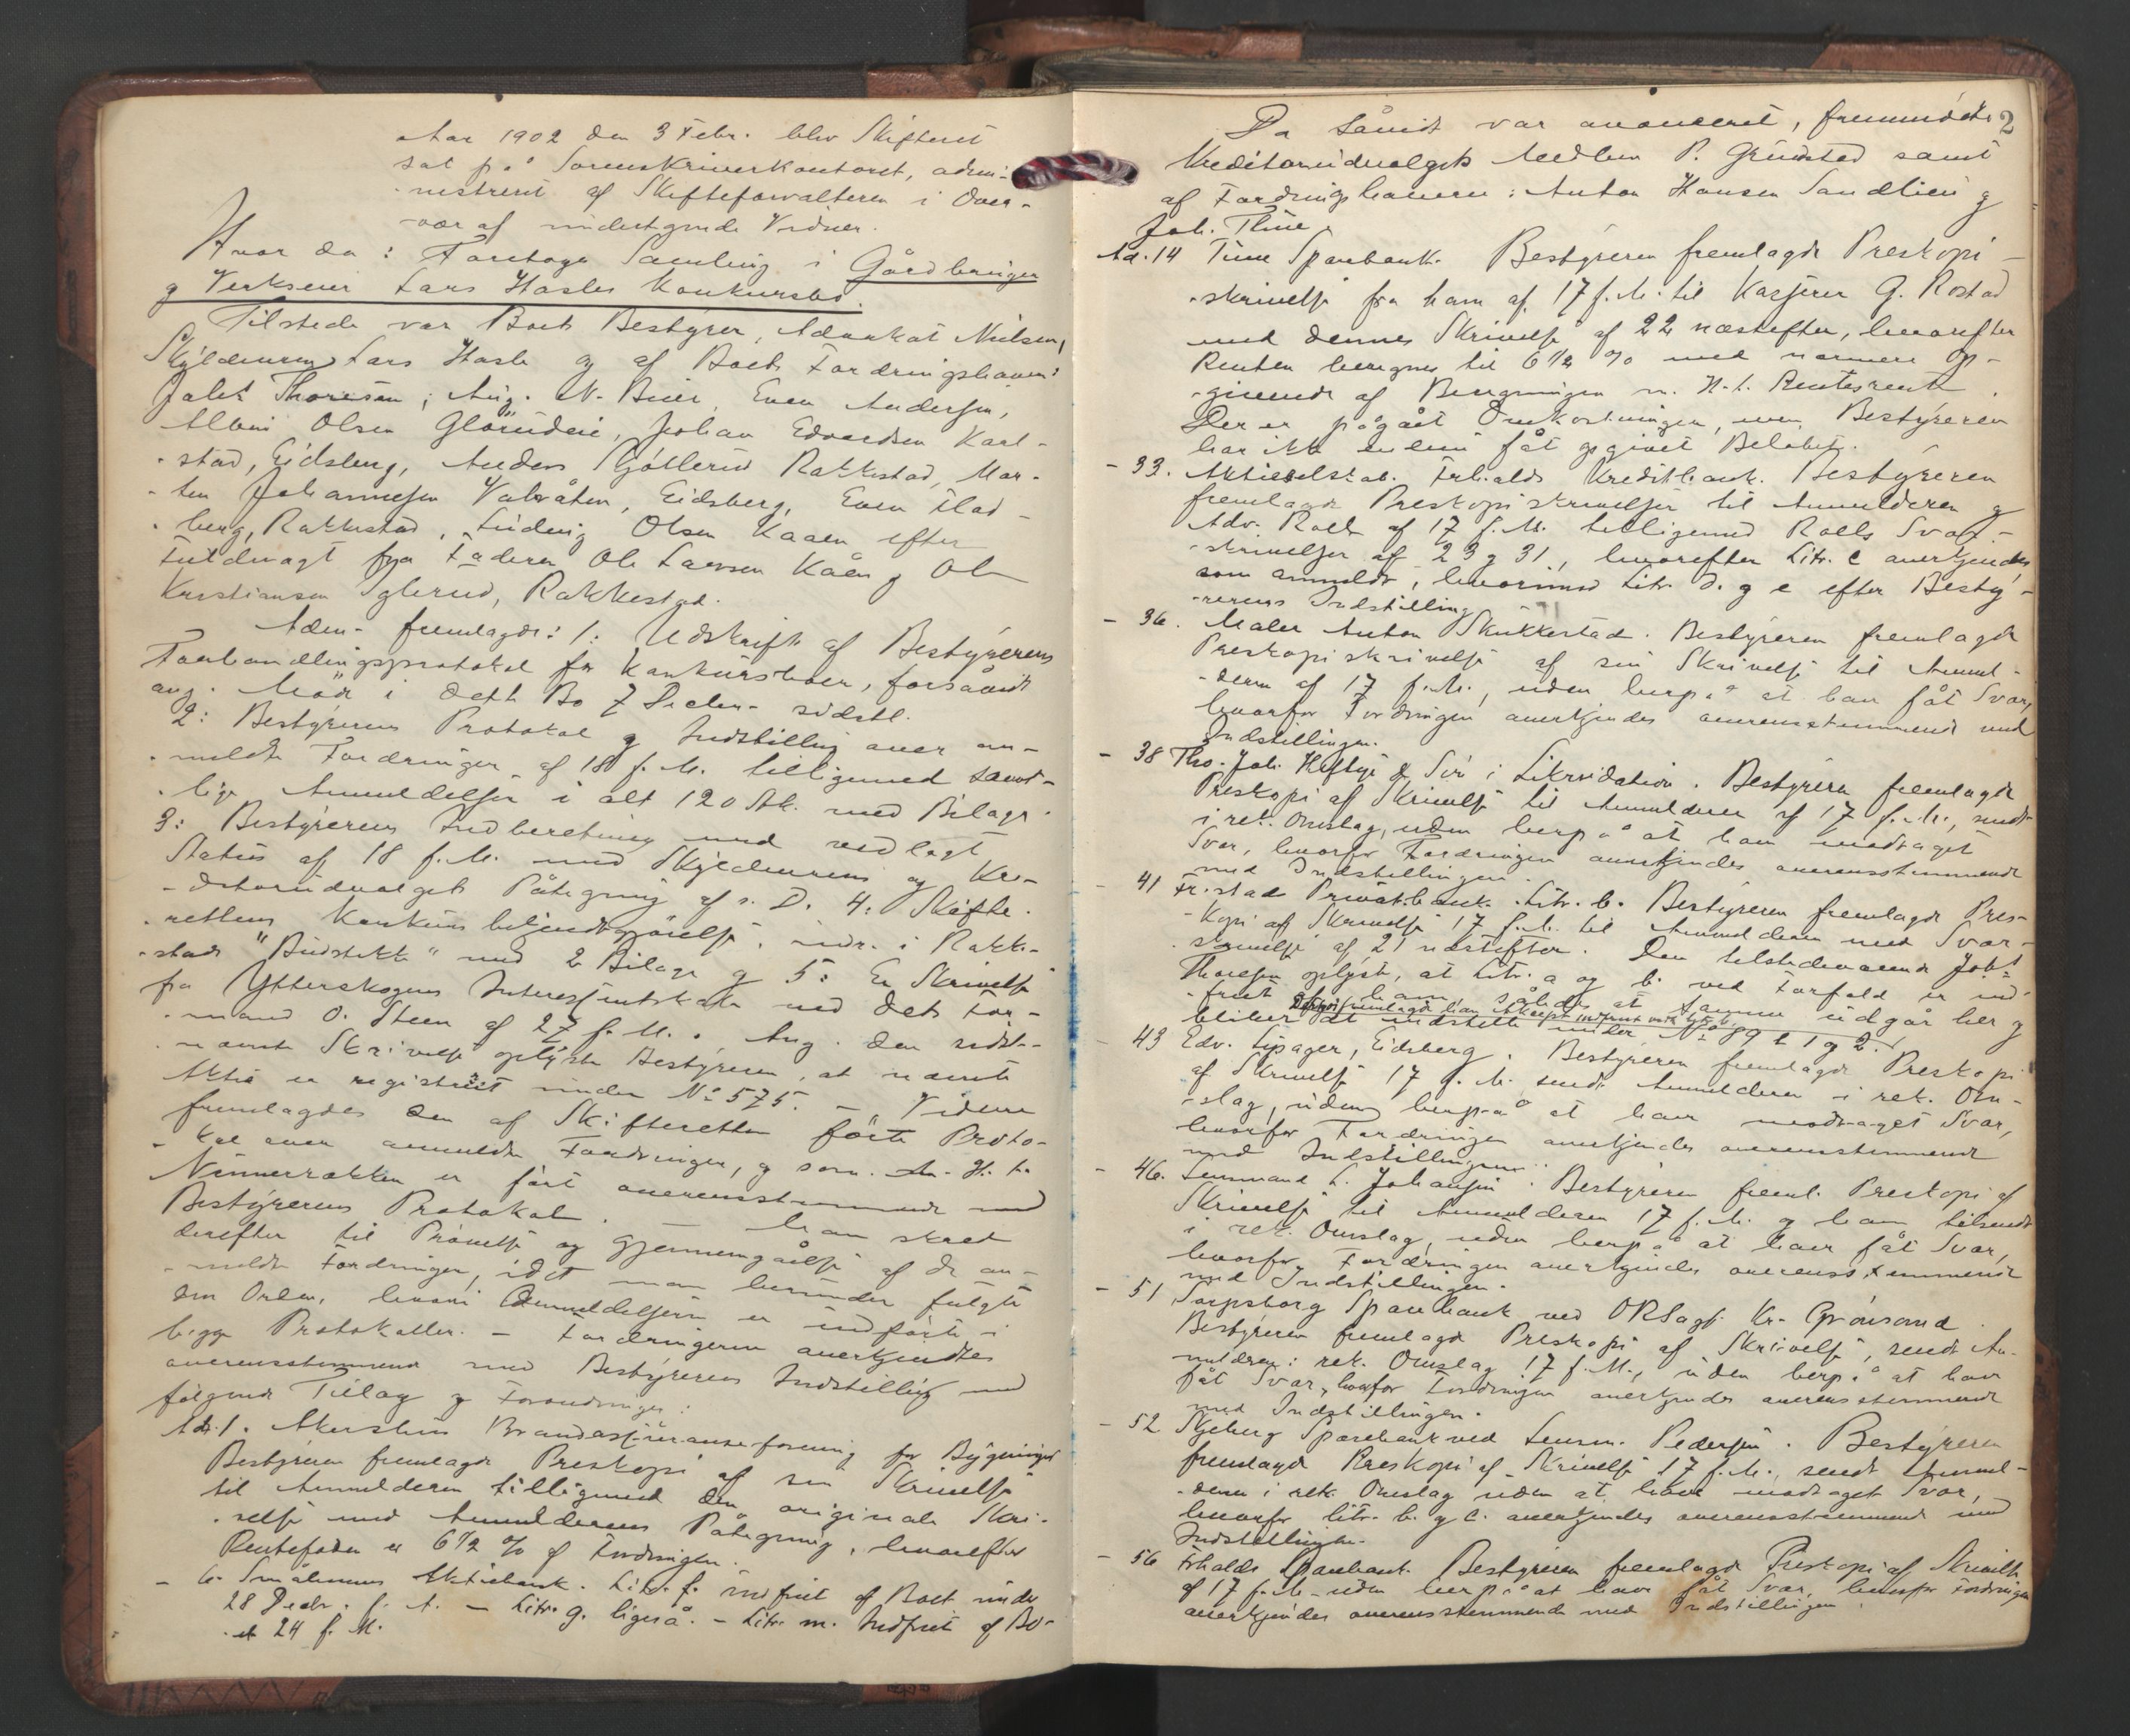 Aar 1902 den 3 Febr. blev Skifteret
sat på Sorenskriverkontoret, admi-
nistreret af Skifteforvalteren i Over-
-vær af undertegnede Vidner.
Hvor da: Foretoges Samling i Gårdbruger
og Verkseier Lars Hasles Konkursbo.
Tilstede var Boets Bestyrer, Advokat Nielsen,
Skyldneren Lars Hasle og af Boets Fordringshavere
Thoresen, Aug. N. Even Andersen,
Olsen Johan Edvardsen Karl-
-stad, Eidsberg, Anders Rakkestad, Mar-
-ten Johannesen Eidsberg, Even Flad-
-berg, Rakkestad, Ludvig Olsen Kaaen efter
Fuldmagt fra Faderen Ole Larsen Kåen og Ole
Kristiansen Rakkestad.
fremlagde: 1: Udskrift af Bestyrerens
Forhandlingsprotokol for Konkursboer, forsåvidt
ang. Møde i dette Bo 7 Decbr. sidstl.
2: Bestyrerens Protokol og Indstilling over an-
-meldte Fordringer af 18 f. M. tilligemed samt-
-lige Anmeldelser i alt 120 Stk. med Bilage.
3: Bestyrerens Indberetning med vedlagt
Status af 18 f. M. med Skyldnerens og Kre-
-ditorudvalgets Påtegning af s. D. 4: Skifte-
-rettens Konkursbekjendtgjørelse, indr. i Rakke-
-stads "Budstikke" med 2 Bilage og 5: En Skrivelse
fra Ytterskogens Interessentskab ved dets For-
-mand O. Steen af 27 f. M. Ang. den sidst-
nævnte Skrivelse oplyste Bestyreren, at nævnte
Aktie er registreret under No 575. - Videre
fremlagdes den af Skifteretten førte Proto-
-kol over anmeldte Fordringer, og som H. t.
Nummerrækken er ført overensstemmende med
Bestyrerens Protokol. - Man skred
derefter til Prøvelse og Gjennemgåelse af de an-
-meldte Fordringer, idet man herunder fulgte
den Orden, hvori Anmeldelserne er indførte i
begge Protokoller. - Fordringerne anerkjendtes
overensstemmende med Bestyrerens Indstilling med
følgende Tillæg og Forandringer:
Ad. 1. Akershus Brandassuranseforening for Bygninger
Bestyreren fremlagde Preskopi af sin Skrivelse
til Anmelderen tilligemed den originale Skri-
-velse med Anmelderens Påtegning, hvorefter
Rentefoden er 6 1/2 % af Fordringen.
- 6. Smalenenes Aktiebank. Litr. f. indfriet af Boet under
28 Decbr. f. A. - Litr. g. ligeså. - Litr. m. Indfriet af Bo-
-et 24 f. M.
2
Da såvidt var avanceret, fremmødte
Kreditorudvalgets Medlem P. Grimstad samt
af Fordringshavere: Anton Hansen Sandlien og
Joh. Thue
Ad. 14 Tune Sparebank. Bestyreren fremlagde Preskopi-
-skrivelse fra ham af 17 f. M. til Kasserer G. Rostad
med dennes Skrivelse af 22 næstefter, hvorefter
Renten beregnes til 6 1/2 % med nærmere Op-
-givende af Beregningen m. H. t. Rentesrente
Der er pågået Omkostninger, men Bestyreren
har ikke endnu fåt opgivet Beløbet.
- 33. Aktieselskab. Frhalds Kreditbank. Bestyreren
fremlagde Preskopiskrivelser til Anmelderen og
Adv. Roll af 17 f. M. tilligemed Rolls Svar-
-skrivelser af 23 og 31, hvorefter Litr. c anerkjendes
som anmeldt, hvorimod Litr. d. og e efter Besty-
-rerens Indstilling
- 36. Maler Anton Skukkestad. Bestyreren fremlagde
Preskopiskrivelse af sin Skrivelse til Anmel-
-deren af 17 f. M., uden herpå at have fåt Svar,
hvorfor Fordringen anerkjendes overensstemmende med
Indstillingen.
- 38 Tho. Joh. Heftye & Søn i Likvidation. Bestyreren fremlagde
Preskopi af Skrivelse til Anmelderen af 17 f. M., sendt
i rek. Omslag, uden herpå at have modtaget
Svar, hvorfor Fordringen anerkjendes overensstemmende
med Indstillingen.
- 41 Fr.stad Privatbank. Litr. b. Bestyreren fremlagde Pres-
-kopi af Skrivelse 17 f. M. til Anmelderen med Svar-
-skrivelse af 21 næstefter. Den tilstedeværende Johs.
Thoresen oplyste, at Litr. a og b. ved Forfald er ind-
-friet af ham, således at samme udgår her og
Derfor fremlagde han
bliver at indstille under No 89 t 1 og 2.
- 43 Edv. Eidsberg. Bestyreren fremlagde Preskopi
af Skrivelse 17 f. M. sendt Anmelderen i rek. Om-
-slag, uden herpå at have modtaget Svar,
hvorfor Fordringen anerkjendes overensstemmende
med Indstillingen.
- 46. Lensmand L. Johansen. Bestyreren freml. Preskopi af
Skrivelse til Anmelderen 17 f. M. og ham tilsendt
i rek. Omslag, uden herpå at have fåt Svar,
hvorfor Fordringen anerkjendes overensstemmende
med Indstillingen.
- 51 Sarpsborg Sparebank ved ORSagf. Kr. Grønsand.
Bestyreren fremlagde Preskopi af Skrivelse, sendt An-
melderen i rek. Omslag 17 f. M., uden herpå at have
fåt Svar, hvorfor Fordringen anerkjendes overensstemmende
med Indstillingen.
- 52 Skjeberg Sparebank ved Lensm. Pedersen. Bestyreren
fremlagde Preskopi af Skrivelse 17 f. M., sendt Anmel-
-deren i rek. Omslag uden at have modtaget Svar,
hvorfor litr. b. og c. anerkjendes overensstemmende med
Indstillingen.
- 56 Frhalds Sparebank. Bestyreren fremlagde Preskopi af Skrivelse
af 17 f. M. uden herpå at have fåt Svar, hvorfor Fordringen
anerkjendes overensstemmende med Indstillingen.